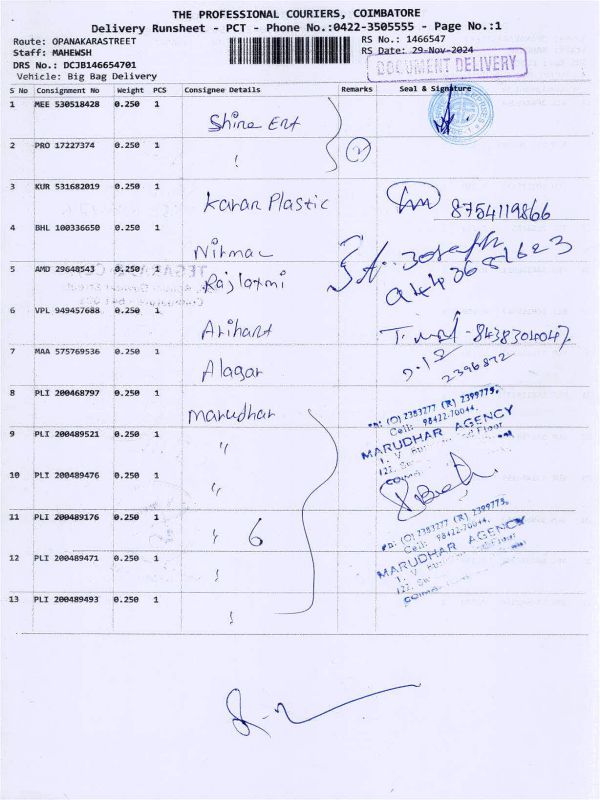 THE PROFESSIONAL COURIERS, COIMBATORE
Delivery Runsheet - PCT - Phone No.:0422-3505555 - Page No.:1
Route: OPANAKARASTREET RS No.: 1466547
Staff: MAHEWSH RS Date: 29-Nov-2024
DRS No.: DCJB146654701 DOCUMENT DELIVERY
Vehicle: Big Bag Delivery
S No Consignment No Weight PCS Consignee Details Remarks Seal & Signature
1 MEE 530518428 0.250 1 Shine Ent
2 PRO 17227374 0.250 1 " 2
3 KUR 531682019 0.250 1 Karan Plastic 8754119866
4 BHL 100336650 0.250 1 Nirmal
5 AMD 29648543 0.250 1 Rajlaxmi
6 VPL 949457688 0.250 1 Arihant 8438304047
7 MAA 575769536 0.250 1 Alagar 2396872
8 PLI 200468797 0.250 1 Marudhar
(O) 2383277 (R) 2399775,
Cell: 98422-70044.
MARUDHAR AGENCY
9 PLI 200489521 0.250 1 "
10 PLI 200489476 0.250 1 "
11 PLI 200489176 0.250 1 " 6
(O) 2383277 (R) 2399775,
Cell: 98422-70044.
MARUDHAR AGENCY
12 PLI 200489471 0.250 1 "
13 PLI 200489493 0.250 1 "